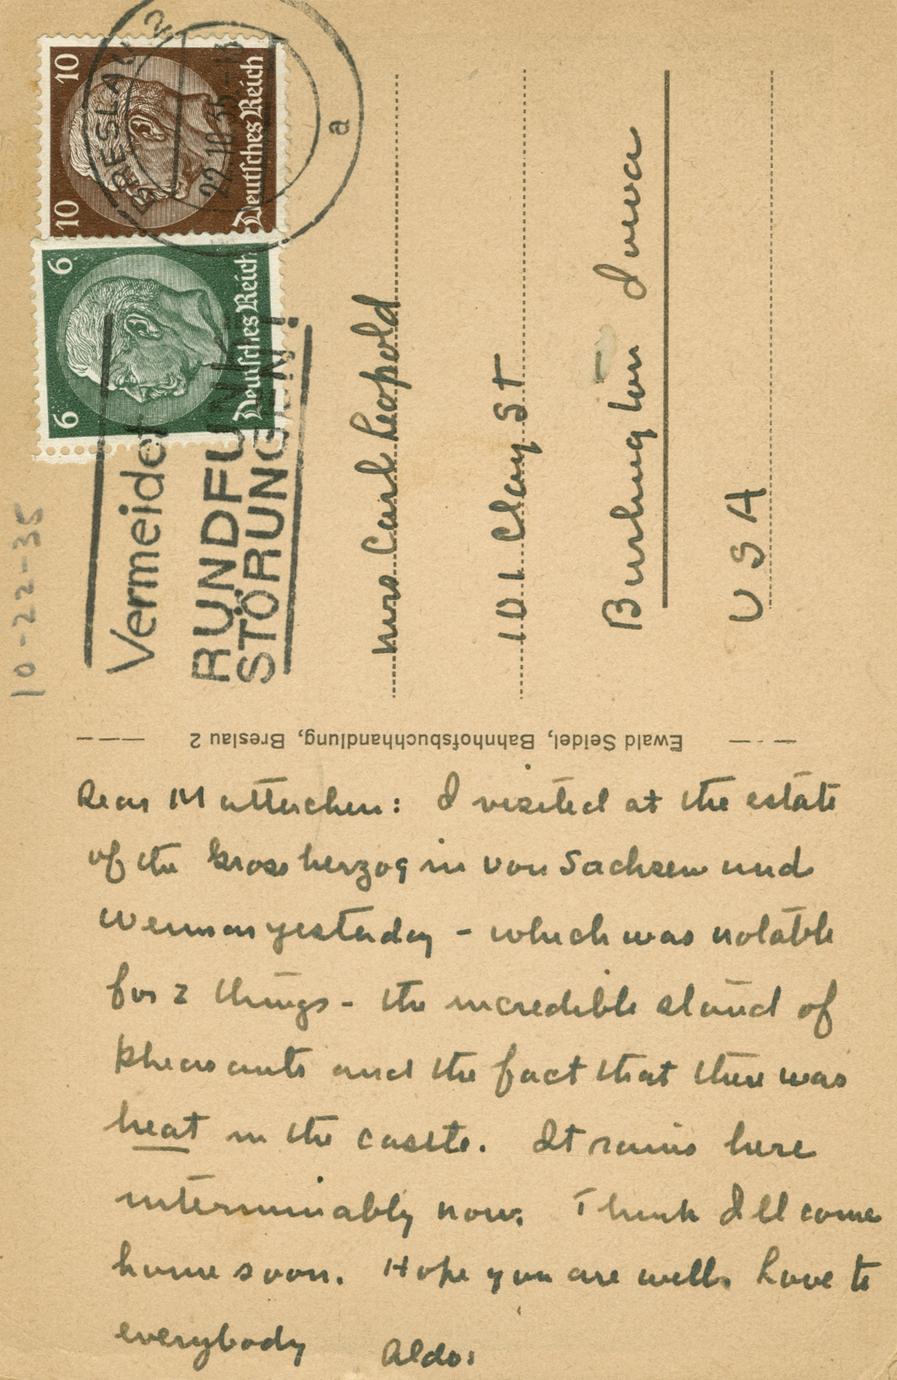 10
10
Deutsches Reich
6
6
Deutsches Reich
BRESLAU 2
22.10.35
a
Vermeidet
RUNDFUNK
STÖRUNGEN!
10-22-35
Mrs Carl Leopold
101 Clay St
Burlington Iowa
USA
Ewald Seidel, Bahnhofsbuchhandlung, Breslau 2
Dear Mutterchen: I visited at the estate
of the Grossherzogin von Sachsen und
Weimar yesterday - which was notable
for 2 things - the incredible stand of
pheasants and the fact that there was
heat in the castle. It rains here
interminably now. Think I'll come
home soon. Hope you are well. Love to
everybody Aldo.